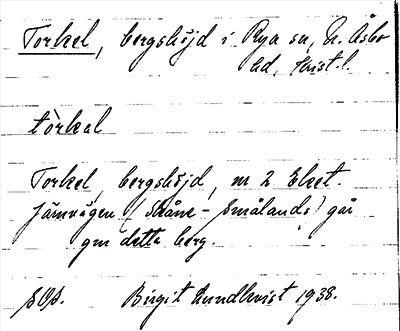 Torkel, bergshöjd i Rya sn, N. Åsbo
hd, Krist. l.
tòrkəl
Torkel, bergshöjd, nr 2 Eket.
Järnvägen (Skåne - Smålands) går
gm detta berg.
Birgit Lundkvist 1938.